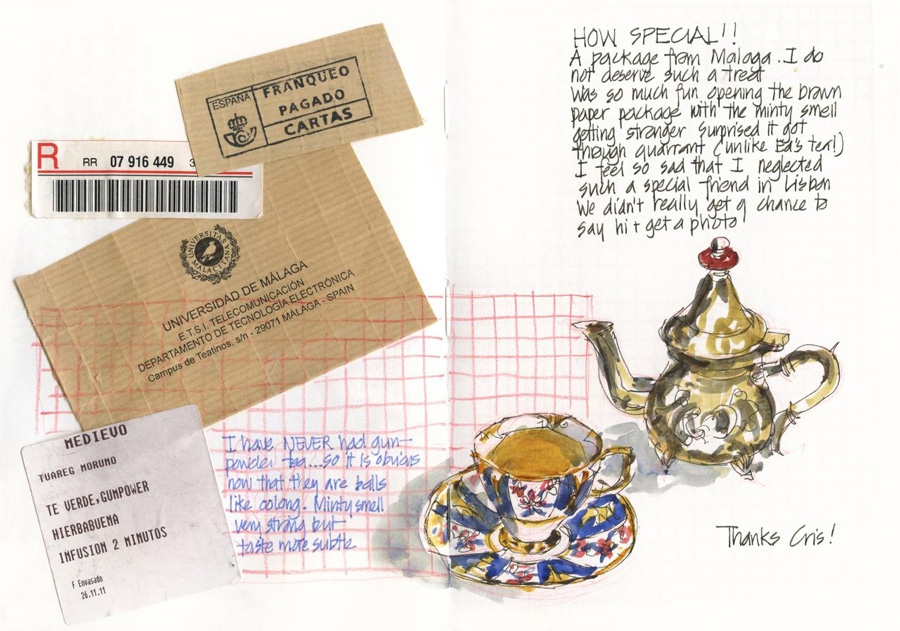 ESPAÑA
FRANQUEO
PAGADO
CARTAS
R
RR 07 916 449 3
UNIVERSITAS
MALACITANA
UNIVERSIDAD DE MÁLAGA
E.T.S.I. TELECOMUNICACIÓN
DEPARTAMENTO DE TECNOLOGÍA ELECTRÓNICA
Campus de Teatinos, s/n - 29071 MÁLAGA - SPAIN
MEDIEVO
TUAREG MORUNO
TE VERDE,GUMPOWER
HIERBABUENA
INFUSION 2 MINUTOS
F Envasado
26.11.11
I have NEVER had gun-
powder tea...so it is obvious
now that they are balls
like oolong. Minty smell
very strong but
taste more subtle
HOW SPECIAL!!
A package from Malaga. I do
not deserve such a treat
Was so much fun opening the brown
paper package with the minty smell
getting stronger. Surprised it got
though quarrant (unlike Ed's tea!)
I feel so sad that I neglected
such a special friend in Lisbon
We didn't really get a chance to
say hi + get a photo
Thanks Cris!